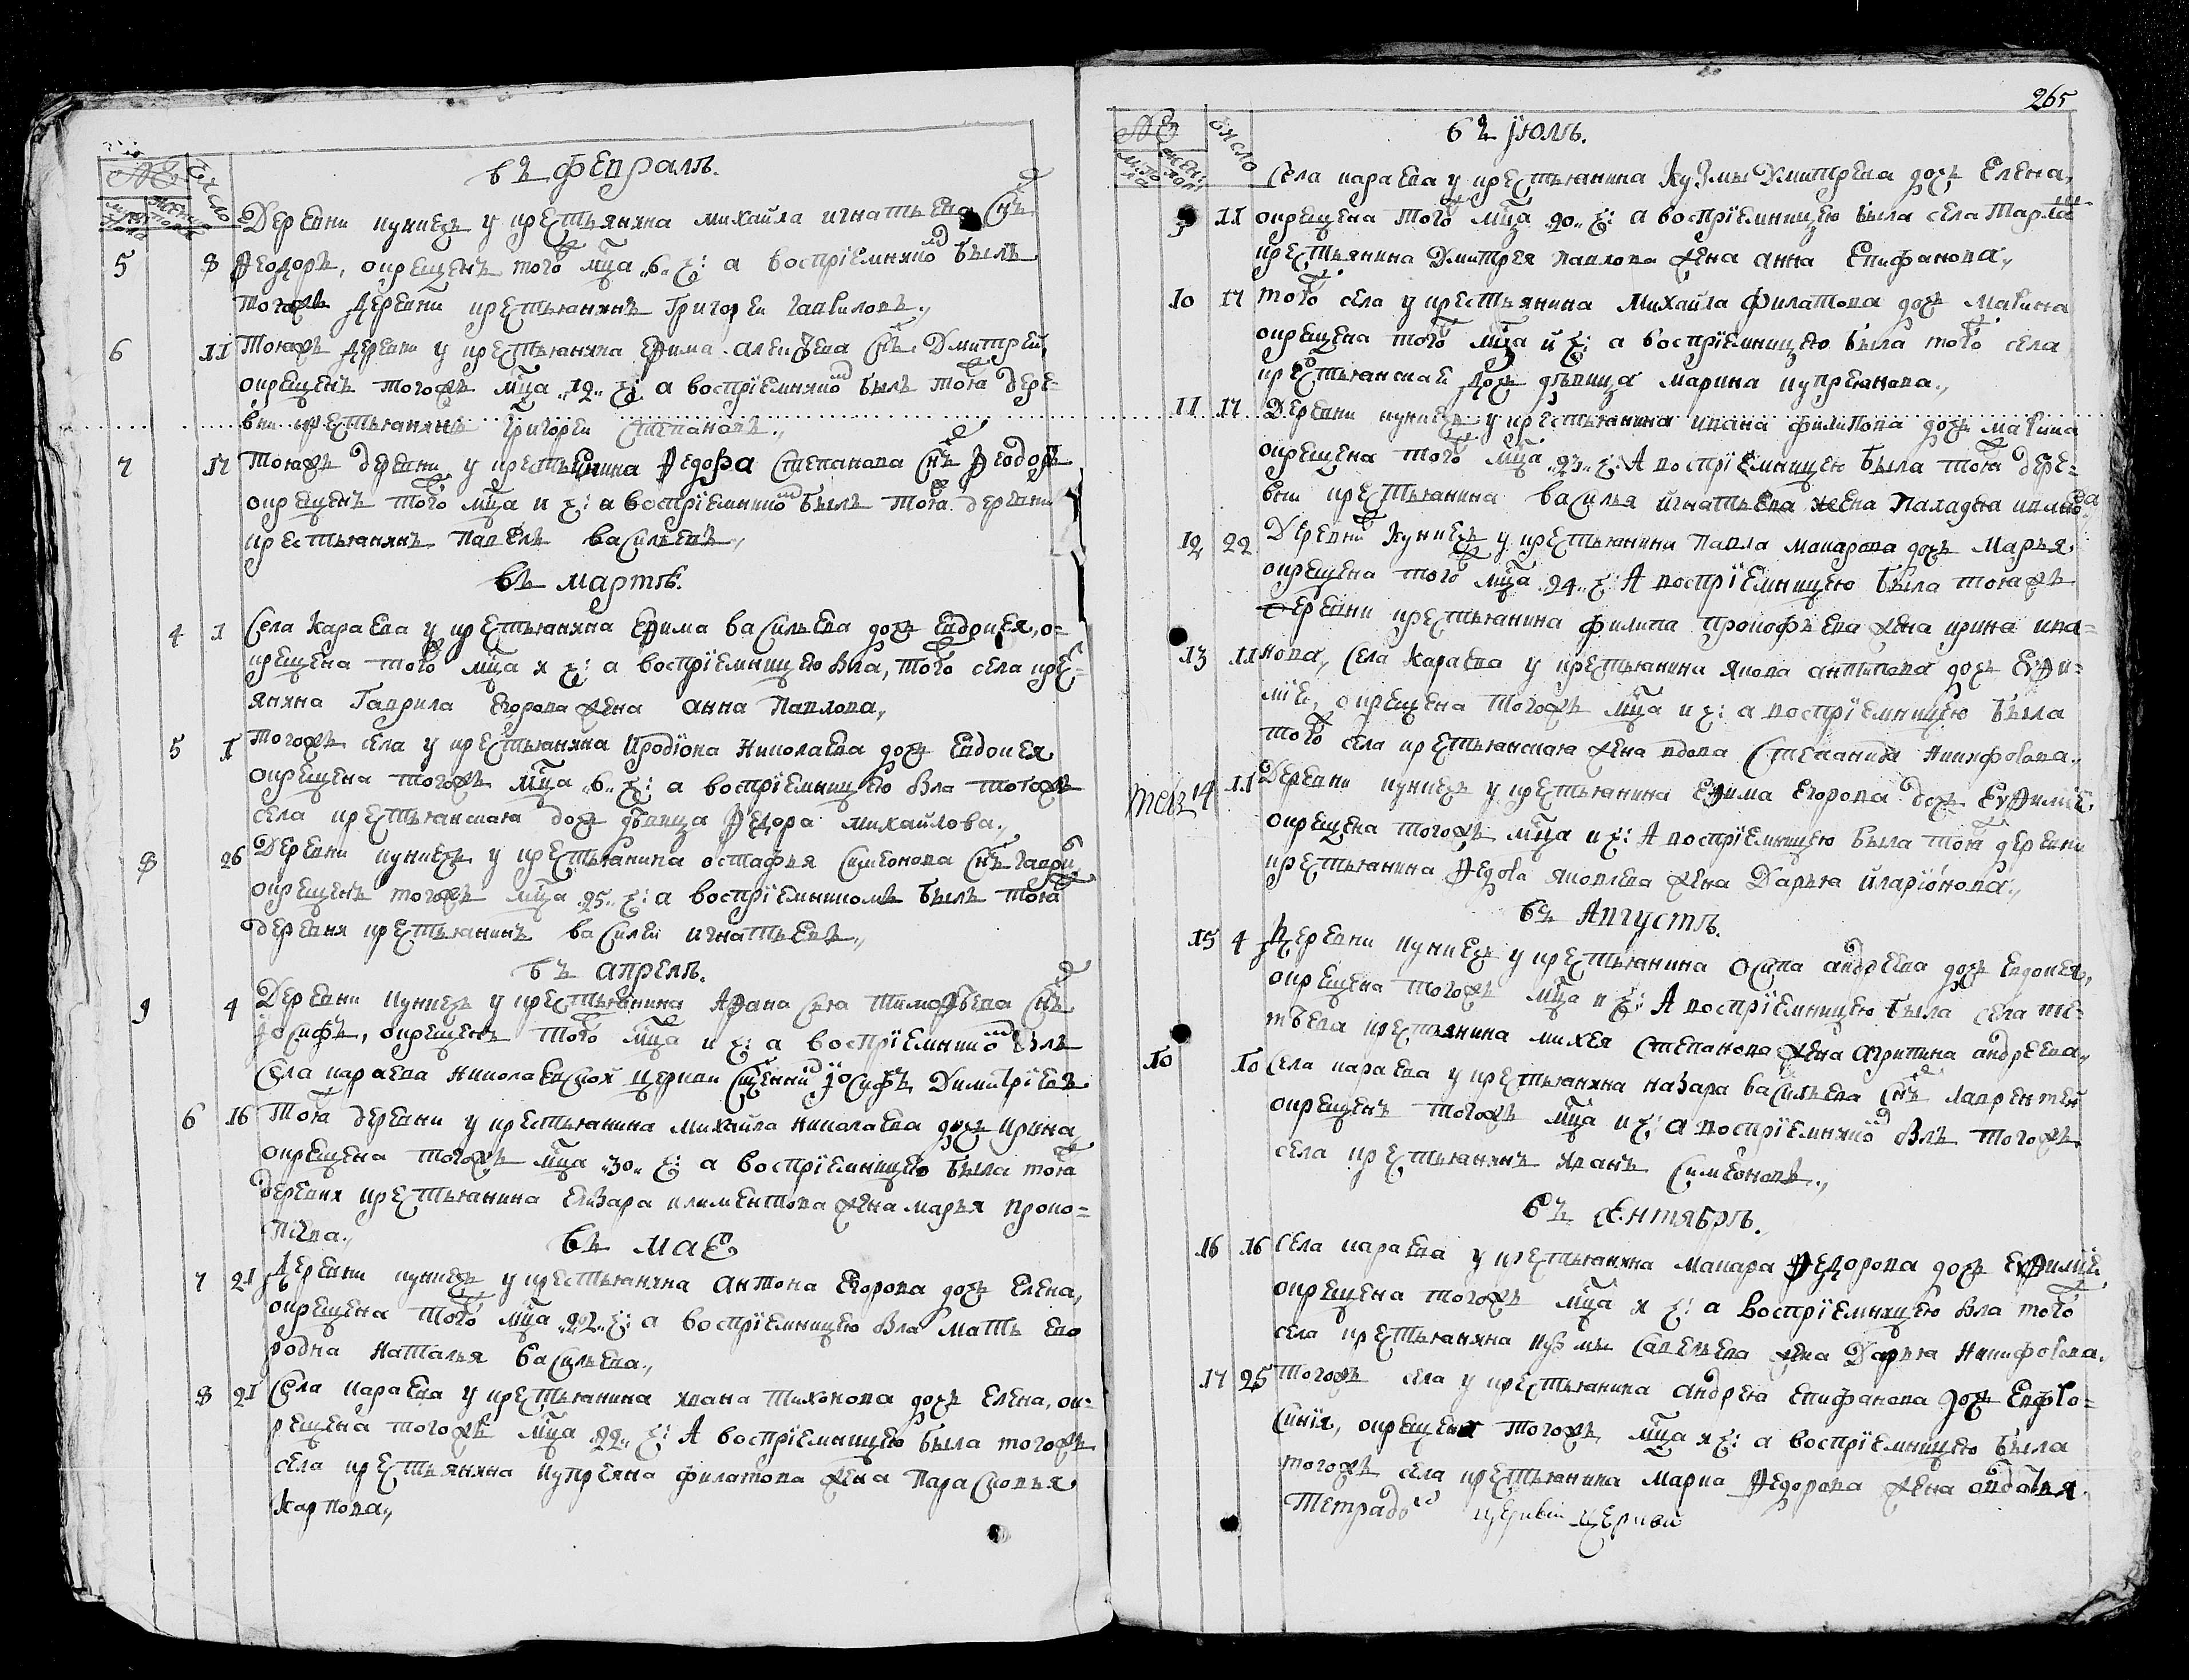 въ февралѣ.
№ Число
Деревни кунихъ у крестьянина михайла игнатьева снъ
5 8 Ѳеодоръ, окрещенъ того мца 6 ч: а воспрїемнико былъ
тояжъ деревни крестьянинъ григореи гавриловъ.,
6 11 Тояжъ деревни у крестьянина еѳима алеѯѣева снъ Дмитреи,
окрещенъ тогожъ мца 12 ч: а воспрїемнико былъ тоя дере-
вни крестьянинъ григореи степановъ.,
7 17 Тояжъ деревни у крестьянина Ѳедора степанова снъ Ѳеодоръ
окрещенъ того мца и ч: а воспрїемнико былъ тоя деревни
крестьянинъ павелъ васильевъ.,
въ мартѣ:
4 1 Села караева у крестьянина еѳима васильева дочь евдокея, о-
крещена того мца и ч: а воспрїемницею бла, того села кре-
янина гаврила егорова жена анна павлова,
5 1 тогожъ села у крестьянина иродїона николаева дочь евдокея
окрещена тогожъ мца 6 ч: а воспрїемницею бла тогожъ
села крестьянская дочь дѣвица Ѳедора михайлова.,
8 26 Деревни кунихъ у крестьянина остафья симеонова снъ гаври
окрещенъ тогожъ мца 25 ч: а воспрїемникомъ былъ тоя
деревня крестьянинъ василеи игнатьевъ.,
въ апрелѣ.
9 4 Деревни кунихъ у крестьянина аѳанасья тимоѳѣева снъ
Іосифъ, окрещенъ того мца и ч: а воспрїемнико блъ
села караева николаевской церкви сщенни Іосифъ Димитрїевъ
6 16 Тоя деревни у крестьянина михайла николаева дочь ирина
окрещена тогожъ мца 30 ч: а воспрїемницею была тоя
деревня крестьянина елизара климентова жена марья проко-
пїева.,
въ мае
7 21 Деревни кунихъ у крестьянина антона егорова дочь елена,
окрещена того мца 22 ч: а воспрїемницею бла мать ево
родна наталья васильева.,
8 21 Села караева у крестьянина ивана тихонова дочь елена, ок-
рещена тогожъ мца 22 ч: а воспрїемницею была тогожъ
села крестьянина купреяна филатова жена парасковья
карпова,,
265
въ Іюлѣ.
№ число
Села караева у крестьянина кузмы Дмитрева дочь елена,
9 11 окрещена того мца 20 ч: а воспрїемницею была села
крестьянина Дмитрея павлова жена анна епифанова.,
10 17 того села у крестьянина михайла филатова дочь макина
окрещена того мца и ч: а воспрїемницею была того села
крестьянская дочь дѣвица марина купреянова.,
11 17 Деревни кунихъ у крестьянина ивана филипова дочь макина
окрещена того мца 23 ч: а воспрїемницею была тоя дере-
вни крестьянина василья игнатьева жена паладея
12 22 Деревни кунихъ у крестьянина павла макарова дочь марья
окрещена того мца 24 ч: а воспрїемницею была тояжъ
деревни крестьянина филипа прокофьева жена ирина ива-
13 11 нова, села караева у крестьянина якова антипова дочь еѵѳи-
мїе, окрещена тогожъ мца и ч: а воспрїемницею была
того села крестьянская жена вдова степанида никифорова.,
14 11 Деревни кунихъ у крестьянина еѳима егорова дочь еѵѳимїе
окрещена тогожъ мца и ч: а воспрїемницею была тоя деревни
крестьянина Ѳедора яковлева жена Дарья иларїонова.,
въ Августѣ.
15 4 Деревни кунихъ у крестьянина осипа андреева дочь евдокея,
окрещена тогожъ мца и ч: а воспрїемницею была села
крестьянина михея степанова жена агрипина андреева,
10 10 села караева у крестьянина назара васильева снъ лаврентеи
окрещенъ тогожъ мца и ч: а воспрїемнико блъ тогожъ
села крестьянинъ иванъ симеоновъ.,
въ сентябрѣ.
16 16 села караева у крестьянина макара Ѳедорова дочь еѵѳимїе
окрещена тогожъ мца и ч: а воспрїемницею бла того
села крестьянина кузмы савельева жена Дарья никифорова.
17 25 тогожъ села у крестьянина андрея епифанова дочь евфро-
синїя, окрещена тогожъ мца и ч: а воспрїемницею была
тогожъ села крестьянина марка Ѳедорова жена авдотья
Тетрадь церкви церкви